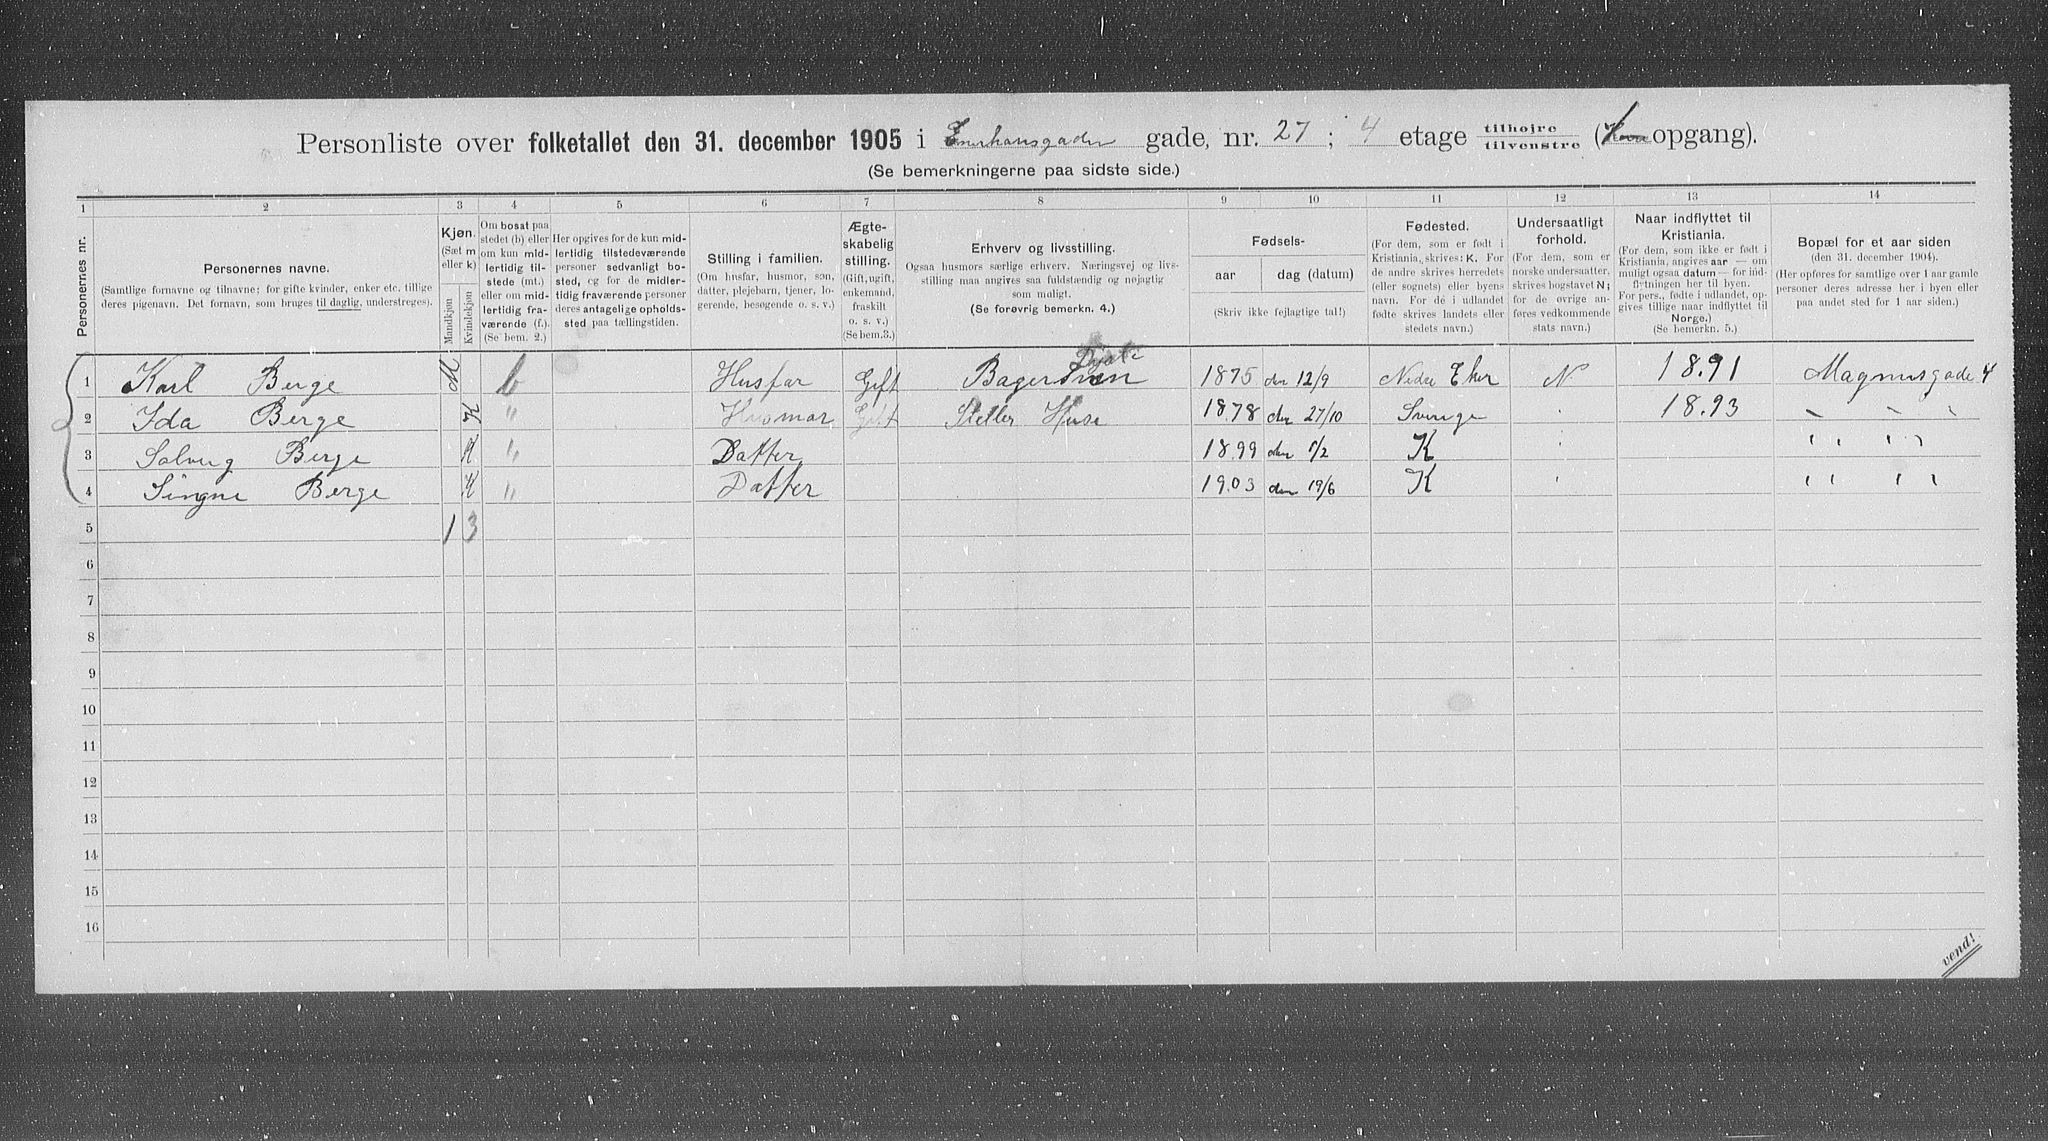 Personliste over folketallet den 31. december 1905 i Enerhausgaden gade, nr. 27 ; 4 etage tilhøire / tilvenstre ( opgang).
(Se bemerkningerne paa sidste side.)
1 2 3 4 5 6 7 8 9 10 11 12 13 14
Personernes nr.
Personernes navne.
(Samtlige fornavne og tilnavne; for gifte kvinder, enker etc. tillige deres pigenavn. Det fornavn, som bruges til daglig, understreges).
Kjøn.
(Sæt m eller k)
Mandkjøn
Kvindekjøn
Om bosat paa stedet (b) eller om kun midlertidig tilstede (mt.) eller om midlertidig fraværende (f.). (Se bem. 2.)
Her opgives for de kun midlertidig tilstedeværende personer sedvanligt bosted, og for de midlertidig fraværende personer deres antagelige opholdssted paa tællingstiden.
Stilling i familien.
(Om husfar, husmor, søn, datter, plejebarn, tjener, logerende, besøgende o. s. v.)
Ægteskabelig stilling.
(Gift, ugift, enkemand, fraskilt o. s. v.)
(Se bem. 3.)
Erhverv og livsstilling.
Ogsaa husmors særlige erhverv. Næringsvej og livsstilling maa angives saa fuldstændig og nøjagtig som muligt.
(Se forøvrig bemerkn. 4.)
Fødsels-
aar
dag (datum)
(Skriv ikke fejlagtige tal!)
Fødested.
(For dem, som er født i Kristiania, skrives: K. For de andre skrives herredets (eller sognets) eller byens navn. For de i udlandet fødte skrives landets eller stedets navn.)
Undersaatligt forhold.
(For dem, som er norske undersaatter, skrives bogstavet N; for de øvrige anføres vedkommende stats navn.)
Naar indflyttet til Kristiania.
(For dem, som ikke er født i Kristiania, angives aar — om muligt ogsaa datum — for indflytningen her til byen. For pers., fødte i udlandet, opgives tillige naar indflyttet til Norge.)
(Se bemerkn. 5.)
Bopæl for et aar siden
(den 31. december 1904).
(Her opføres for samtlige over 1 aar gamle personer deres adresse her i byen eller paa andet sted for 1 aar siden.)
1 Karl Berge M b Husfar Gift Bagersven 1875 den 12/9 Nedre Eker N 1891 Magnusgade 4
2 Ida Berge K " Husmor Gift Steller Huse 1878 den 27/10 Sverige " 1893 " "
3 Solveig Berge K " Datter 1899 den 5/2 K " " "
4 Singne Berge K " Datter 1903 den 19/6 K " " "
5 1 3
6
7
8
9
10
11
12
13
14
15
16
vend!